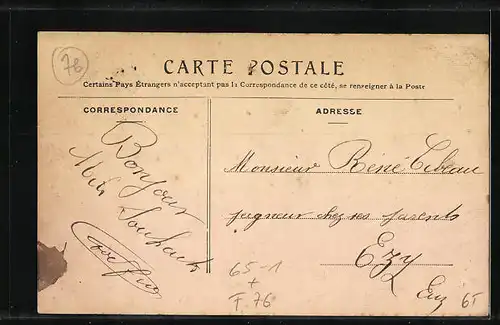 76
CARTE POSTALE
Certains Pays Étrangers n'acceptant pas la Correspondance de ce côté, se renseigner à la Poste
CORRESPONDANCE
Bonjour
Mile Souhaits
ADRESSE
Monsieur René
peigneur chez ses parents
Ezy
Eure
65-1
+
F. 76
65